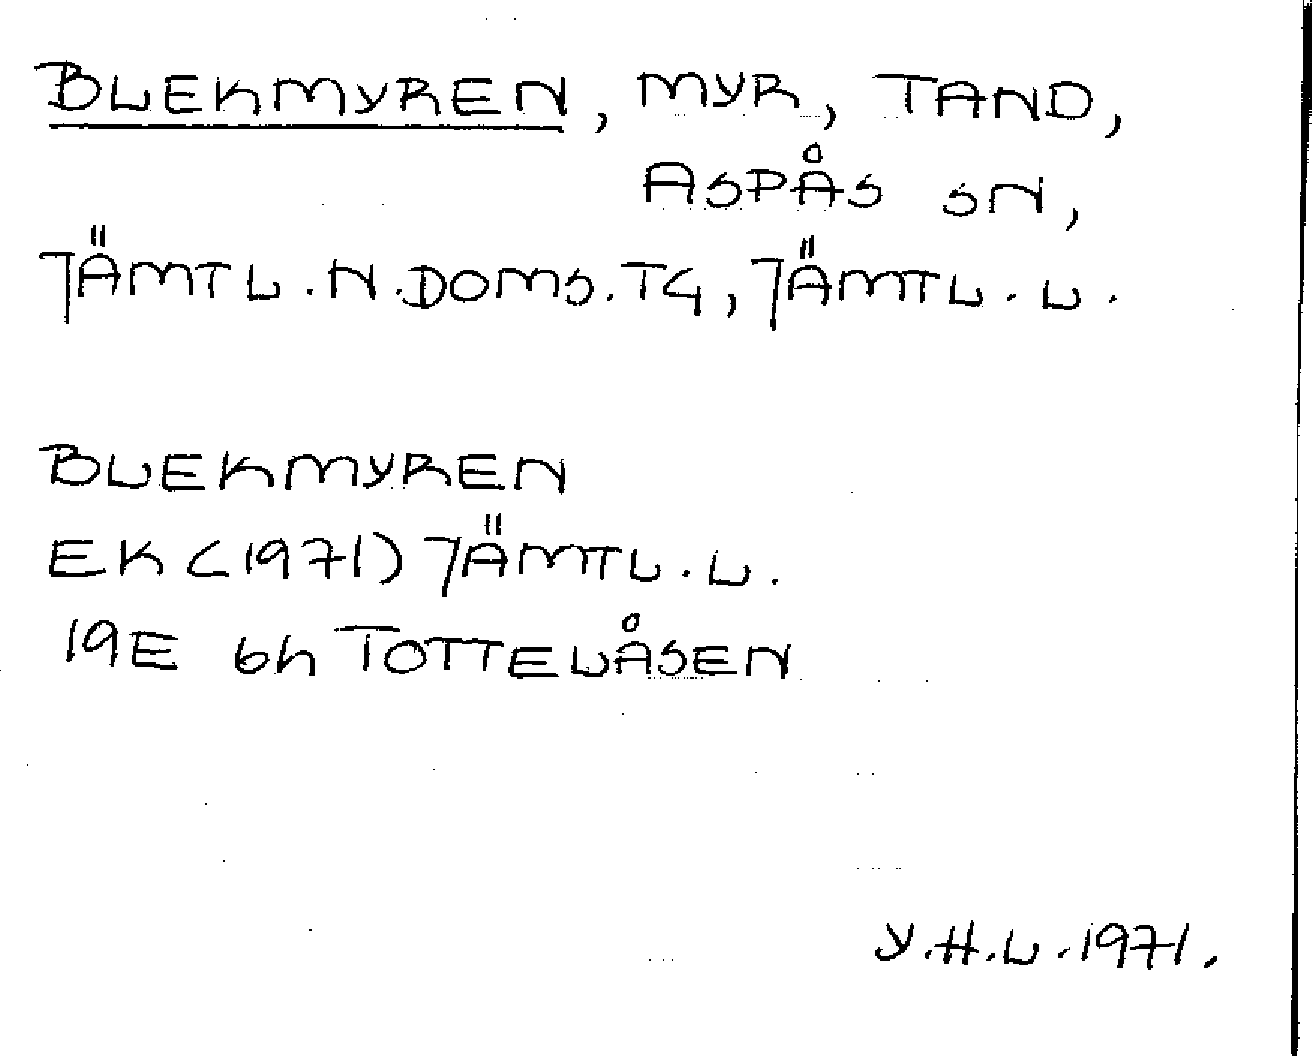 BLEKMYREN, MYR, TAND,
ASPÅS SN,
JÄMTL.N.DOMS.TG, JÄMTL.L.
BLEKMYREN
EK (1971) JÄMTL.L.
19E 6h TOTTELÅSEN
Y.H.L.1971.